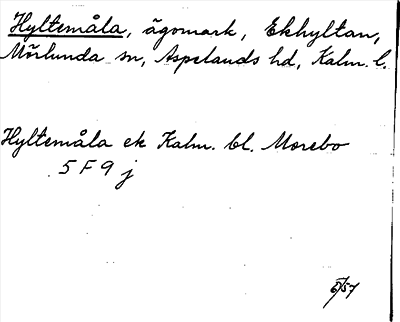 Hyltemåla, ägomark, Ekhyltan,
Mörlunda sn, Aspelands hd, Kalm. l.
Hyltemåla ek Kalm. bl. Morebo
5 F 9 j